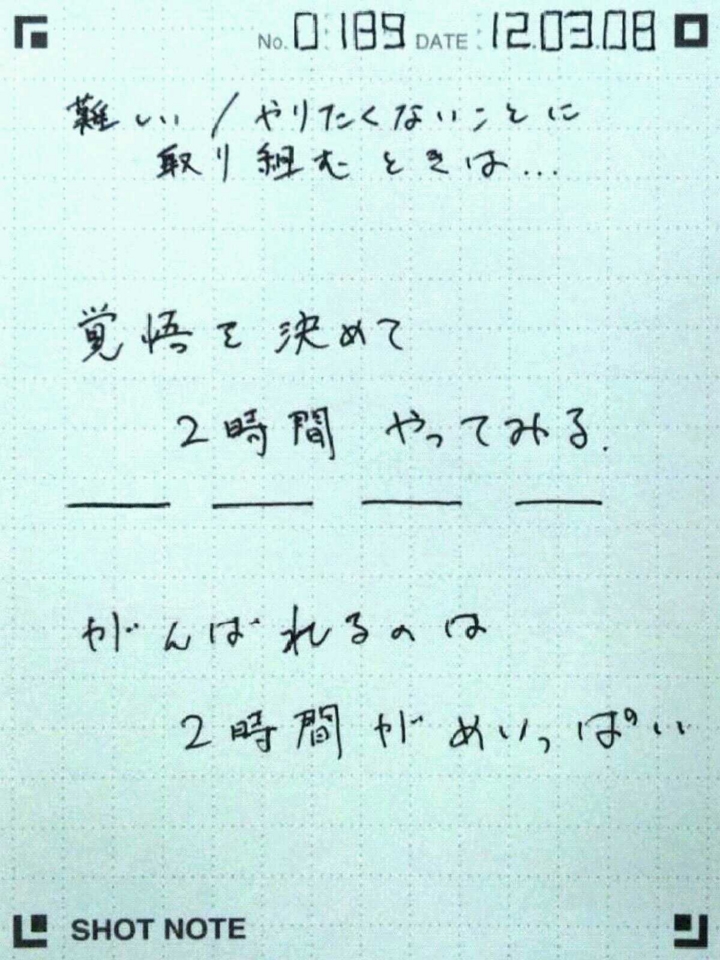 No. 0189 DATE 12.03.08
難しい/やりたくないことに
取り組むときは...
覚悟を決めて
2時間 やってみる.
がんばれるのは
2時間がめいっぱい
SHOT NOTE